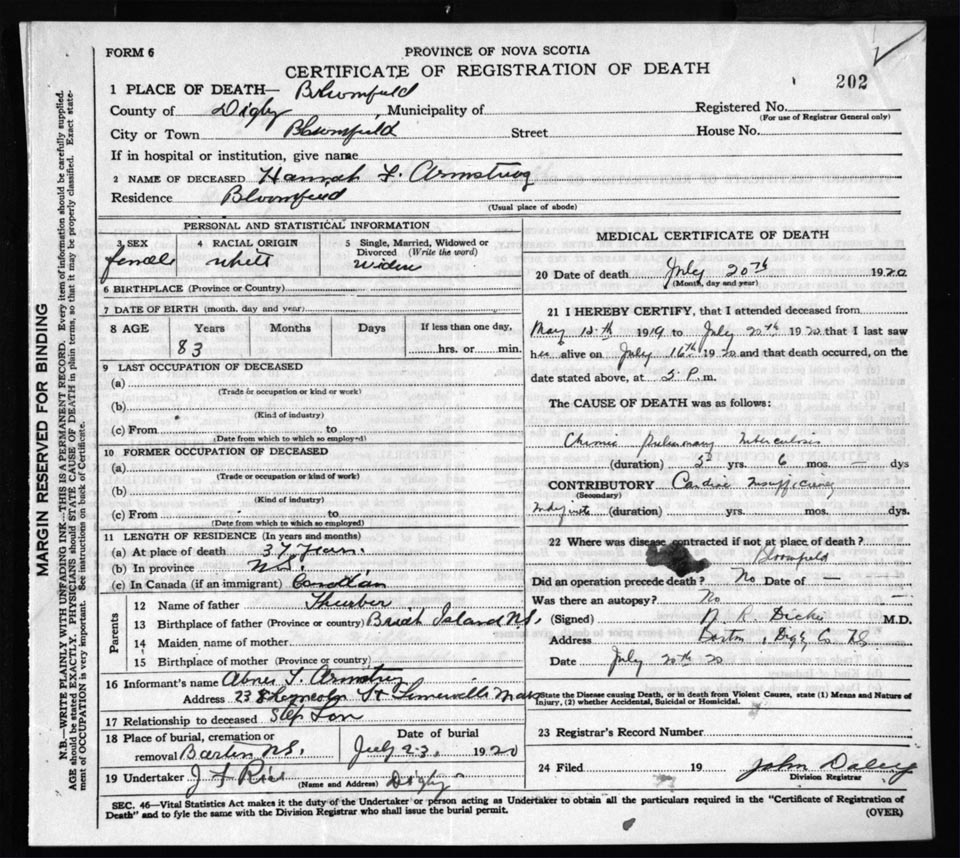 FORM 6
PROVINCE OF NOVA SCOTIA
CERTIFICATE OF REGISTRATION OF DEATH
202
1 PLACE OF DEATH— Bloomfield
County of Digby Municipality of Registered No.
(For use of Registrar General only)
City or Town Bloomfield Street House No.
If in hospital or institution, give name
2 NAME OF DECEASED Hannah F. Armstrong
Residence Bloomfield
(Usual place of abode)
PERSONAL AND STATISTICAL INFORMATION
3 SEX female
4 RACIAL ORIGIN white
5 Single, Married, Widowed or Divorced (Write the word) widow
6 BIRTHPLACE (Province or Country)
7 DATE OF BIRTH (month, day and year)
8 AGE Years Months Days If less than one day,
83 hrs. or min.
9 LAST OCCUPATION OF DECEASED
(a)
(Trade or occupation or kind or work)
(b)
(Kind of industry)
(c) From to
(Date from which to which so employed)
10 FORMER OCCUPATION OF DECEASED
(a)
(Trade or occupation or kind of work)
(b)
(Kind of industry)
(c) From to
(Date from which to which so employed)
11 LENGTH OF RESIDENCE (In years and months)
(a) At place of death 37 years.
(b) In province N.S.
(c) In Canada (if an immigrant) Canadian
Parents
12 Name of father Thurber
13 Birthplace of father (Province or country) Island N.S.
14 Maiden name of mother
15 Birthplace of mother (Province or country)
16 Informant's name Abner F. Armstrong
Address 23 St Mass
17 Relationship to deceased Step Son
18 Place of burial, cremation or removal Barton N.S.
Date of burial July 23, 1920
19 Undertaker J F Rice (Name and Address) Digby
MEDICAL CERTIFICATE OF DEATH
20 Date of death July 20th 1920
(Month, day and year)
21 I HEREBY CERTIFY, that I attended deceased from
May 1919 to July 20th 1920 that I last saw
her alive on July 16th 1920 and that death occurred, on the
date stated above, at 5 P.m.
The CAUSE OF DEATH was as follows:
Chronic Pulmonary Tuberculosis
(duration) yrs. 6 mos. — dys
CONTRIBUTORY Cardiac Insufficiency
(Secondary)
Indefinite (duration) yrs. mos. dys.
22 Where was disease contracted if not at place of death?
Bloomfield
Did an operation precede death? No Date of —
Was there an autopsy? No —
(Signed) R. Dickie M.D.
Address Barton, Digby Co. N.S.
Date July 20th 20
State the Disease causing Death, or in death from Violent Causes, state (1) Means and Nature of
Injury, (2) whether Accidental, Suicidal or Homicidal.
23 Registrar's Record Number
24 Filed 19 John Daley
Division Registrar
SEC. 46—Vital Statistics Act makes it the duty of the Undertaker or person acting as Undertaker to obtain all the particulars required in the "Certificate of Registration of
Death" and to fyle the same with the Division Registrar who shall issue the burial permit. (OVER)
MARGIN RESERVED FOR BINDING
N.B.—WRITE PLAINLY WITH UNFADING INK—THIS IS A PERMANENT RECORD. Every item of information should be carefully supplied.
AGE should be stated EXACTLY. PHYSICIANS should STATE CAUSE OF DEATH in plain terms, so that it may be properly classified. Exact state-
ment of OCCUPATION is very important. See instructions on back of Certificate.